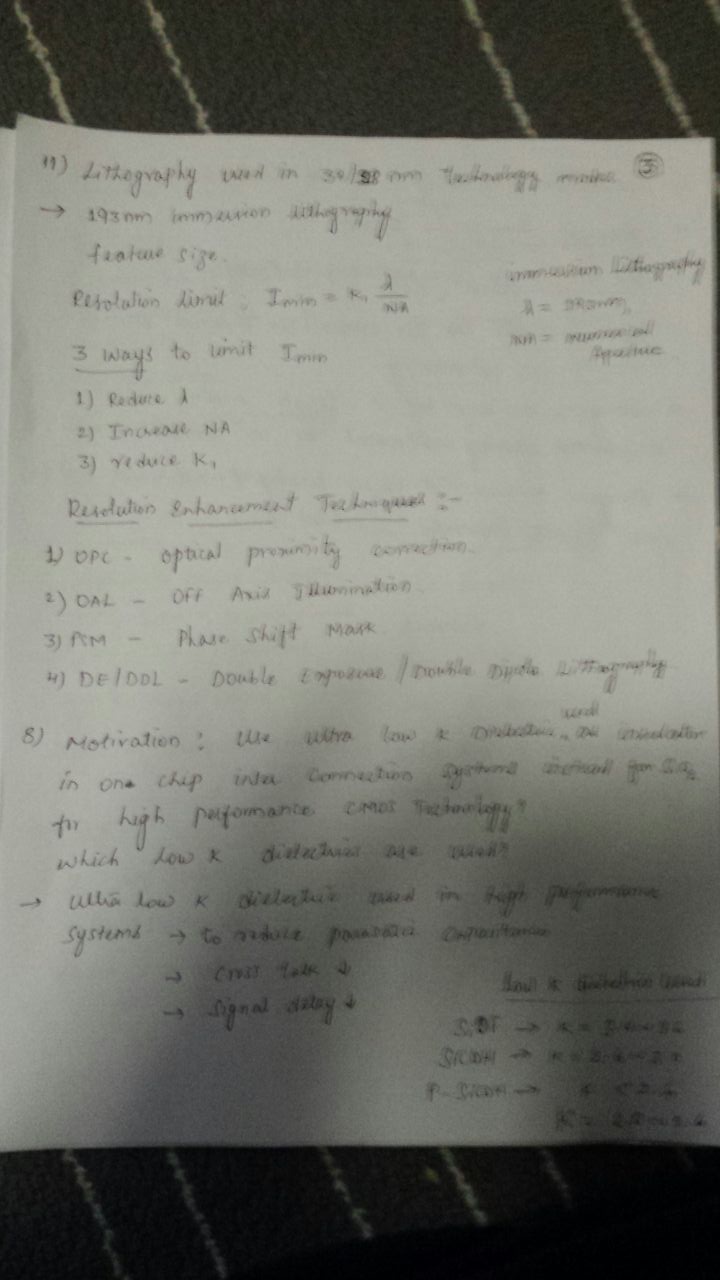 3
11) Lithography used in 32/28 nm technology nodes
→ 193nm immersion lithography
feature size.
Resolution limit : Imin = K₁ λ/NA
immersion lithography
λ = 193nm,
NA = numerical
Aperture
3 ways to limit Imin
1) Reduce λ
2) Increase NA
3) reduce K₁
Resolution Enhancement Techniques :-
1) OPC - optical proximity correction.
2) OAL - OFF Axis Illumination.
3) PSM - Phase Shift Mask
4) DE/DDL - Double Exposure / Double Lithography
8) Motivation : Use ultra low K Dielectric used as insulator
in one chip inter connection systems instead
for high performance CMOS Technology?
which low K dielectrics are used?
→ Ultra low K dielectric used in high performance
systems → to reduce parasitic capacitance
→ cross talk ↓
→ signal delay ↓
low K dielectric
→ K =
SiCOH → K =
P-SiCOH → K <
K =